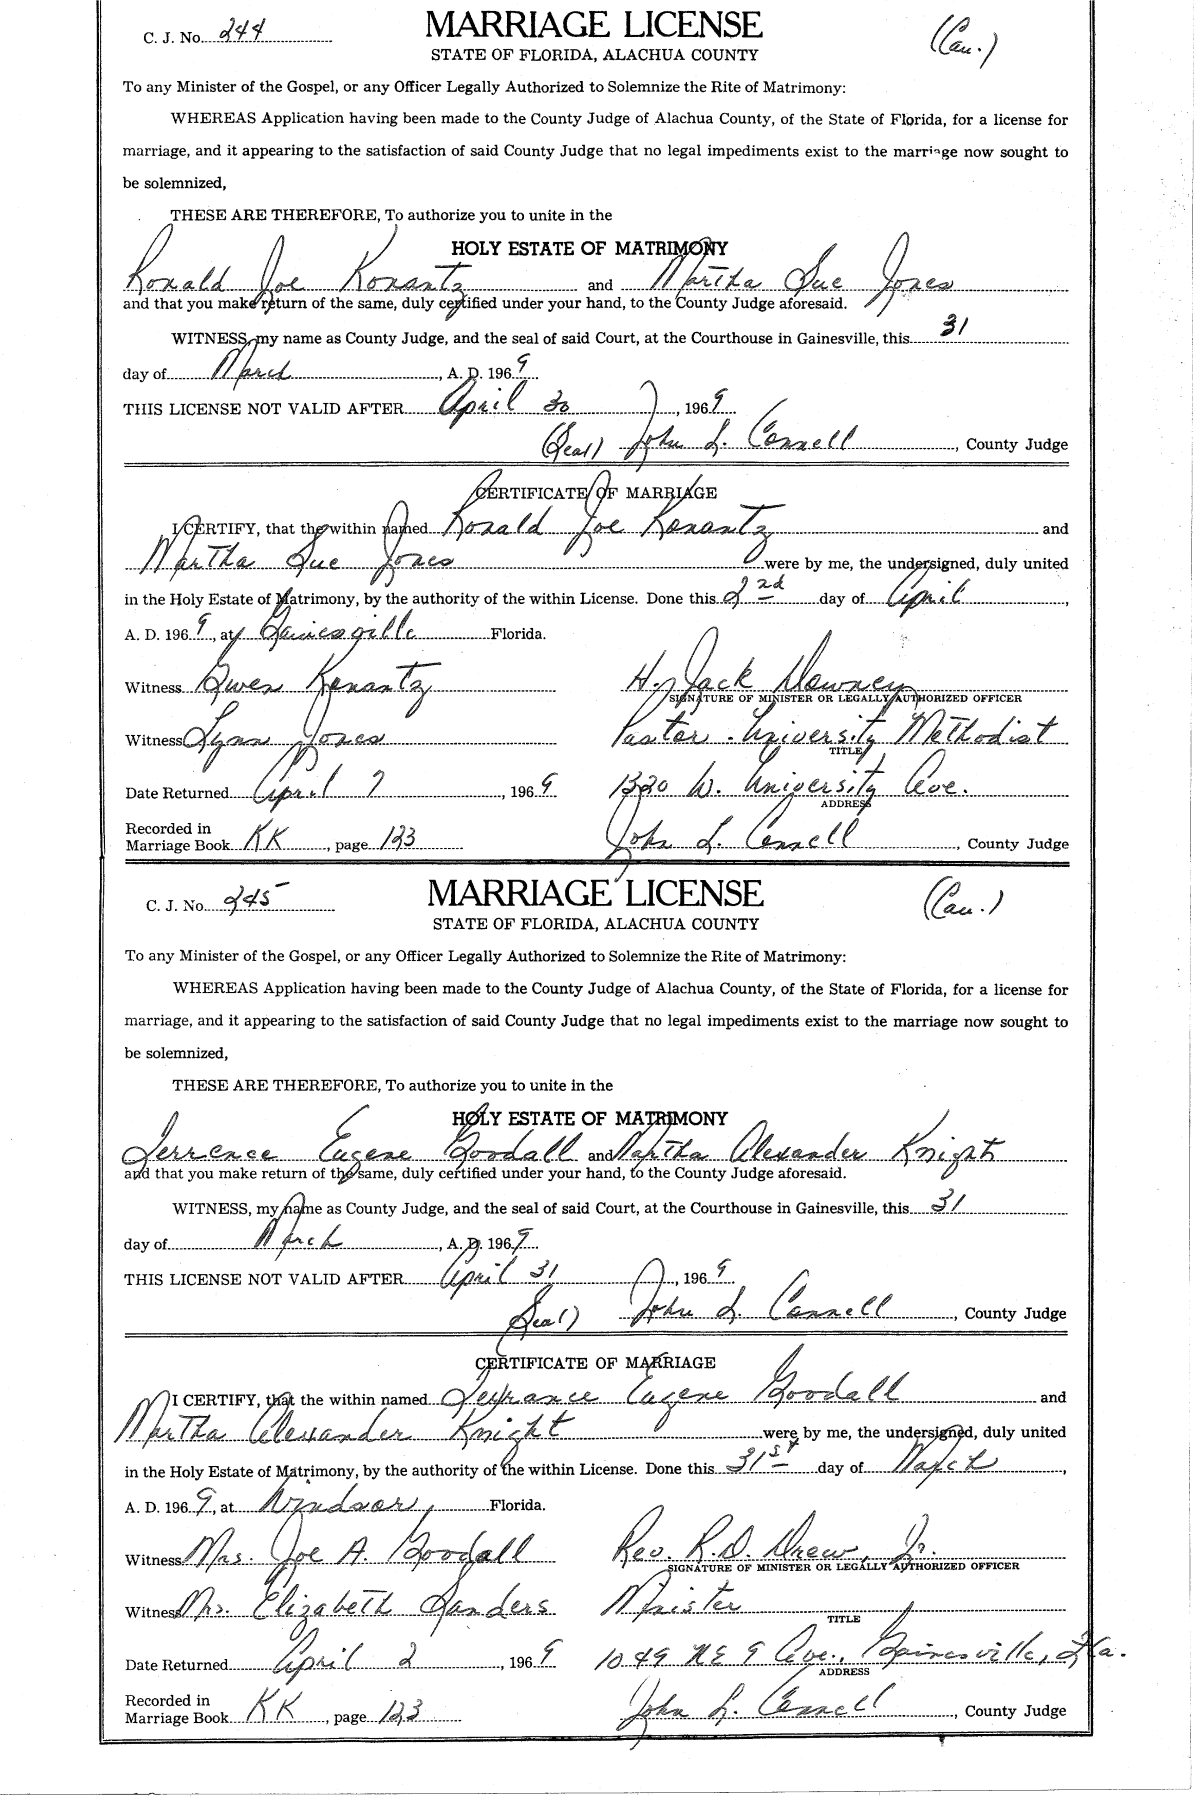 C. J. No. 244
MARRIAGE LICENSE
(Cau.)
STATE OF FLORIDA, ALACHUA COUNTY
To any Minister of the Gospel, or any Officer Legally Authorized to Solemnize the Rite of Matrimony:
WHEREAS Application having been made to the County Judge of Alachua County, of the State of Florida, for a license for
marriage, and it appearing to the satisfaction of said County Judge that no legal impediments exist to the marriage now sought to
be solemnized,
THESE ARE THEREFORE, To authorize you to unite in the
HOLY ESTATE OF MATRIMONY
Ronald Joe Konantz and Martha Sue Jones
and that you make return of the same, duly certified under your hand, to the County Judge aforesaid.
WITNESS, my name as County Judge, and the seal of said Court, at the Courthouse in Gainesville, this 31
day of March, A. D. 1969
THIS LICENSE NOT VALID AFTER April 30, 1969
(Seal) John L. Connell, County Judge
CERTIFICATE OF MARRIAGE
I CERTIFY, that the within named Ronald Joe Konantz and
Martha Sue Jones were by me, the undersigned, duly united
in the Holy Estate of Matrimony, by the authority of the within License. Done this 2nd day of April,
A. D. 1969, at Gainesville Florida.
Witness Gwen Konantz H. Jack Downey
SIGNATURE OF MINISTER OR LEGALLY AUTHORIZED OFFICER
Witness Lynn Jones Pastor - University Methodist
TITLE
Date Returned April 7, 1969 1320 W. University Ave.
ADDRESS
Recorded in
Marriage Book KK, page 123 John L. Connell, County Judge
C. J. No. 245
MARRIAGE LICENSE
(Cau.)
STATE OF FLORIDA, ALACHUA COUNTY
To any Minister of the Gospel, or any Officer Legally Authorized to Solemnize the Rite of Matrimony:
WHEREAS Application having been made to the County Judge of Alachua County, of the State of Florida, for a license for
marriage, and it appearing to the satisfaction of said County Judge that no legal impediments exist to the marriage now sought to
be solemnized,
THESE ARE THEREFORE, To authorize you to unite in the
HOLY ESTATE OF MATRIMONY
Terrence Eugene Goodall and Martha Alexander Knight
and that you make return of the same, duly certified under your hand, to the County Judge aforesaid.
WITNESS, my name as County Judge, and the seal of said Court, at the Courthouse in Gainesville, this 31
day of March, A. D. 1969
THIS LICENSE NOT VALID AFTER April 31, 1969
(Seal) John L. Connell, County Judge
CERTIFICATE OF MARRIAGE
I CERTIFY, that the within named Terrance Eugene Goodall and
Martha Alexander Knight were by me, the undersigned, duly united
in the Holy Estate of Matrimony, by the authority of the within License. Done this 31st day of March,
A. D. 1969, at Windsor, Florida.
Witness Mrs. Joe A. Goodall Rev. R.D. Drew, Jr.
SIGNATURE OF MINISTER OR LEGALLY AUTHORIZED OFFICER
Witness Mrs. Elizabeth Sanders Minister
TITLE
Date Returned April 2, 1969 1049 NE 9 Ave., Gainesville, Fla.
ADDRESS
Recorded in
Marriage Book KK, page 123 John L. Connell, County Judge